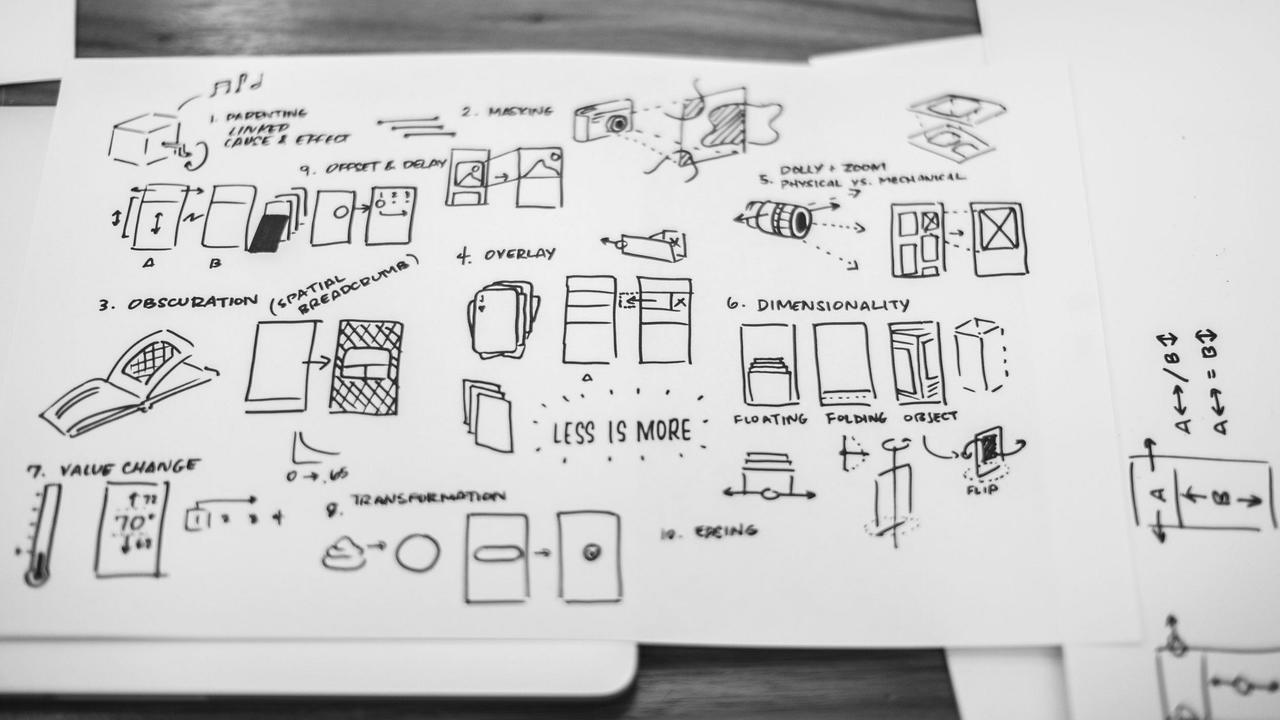 1. PARENTING
LINKED
CAUSE & EFFECT
2. MASKING
9. OFFSET & DELAY
DOLLY + ZOOM
5. PHYSICAL VS. MECHANICAL
1 2 3
A
B
3. OBSCURATION (SPATIAL
BREADCRUMB)
4. OVERLAY
J
X
X
A
6. DIMENSIONALITY
FLOATING FOLDING OBJECT
FLIP
LESS IS MORE
7. VALUE CHANGE
72
70°
68
1 2 3 4
0 → .65
8. TRANSFORMATION
10. EASING
A↔/B↕
A↔=B↕
A
B